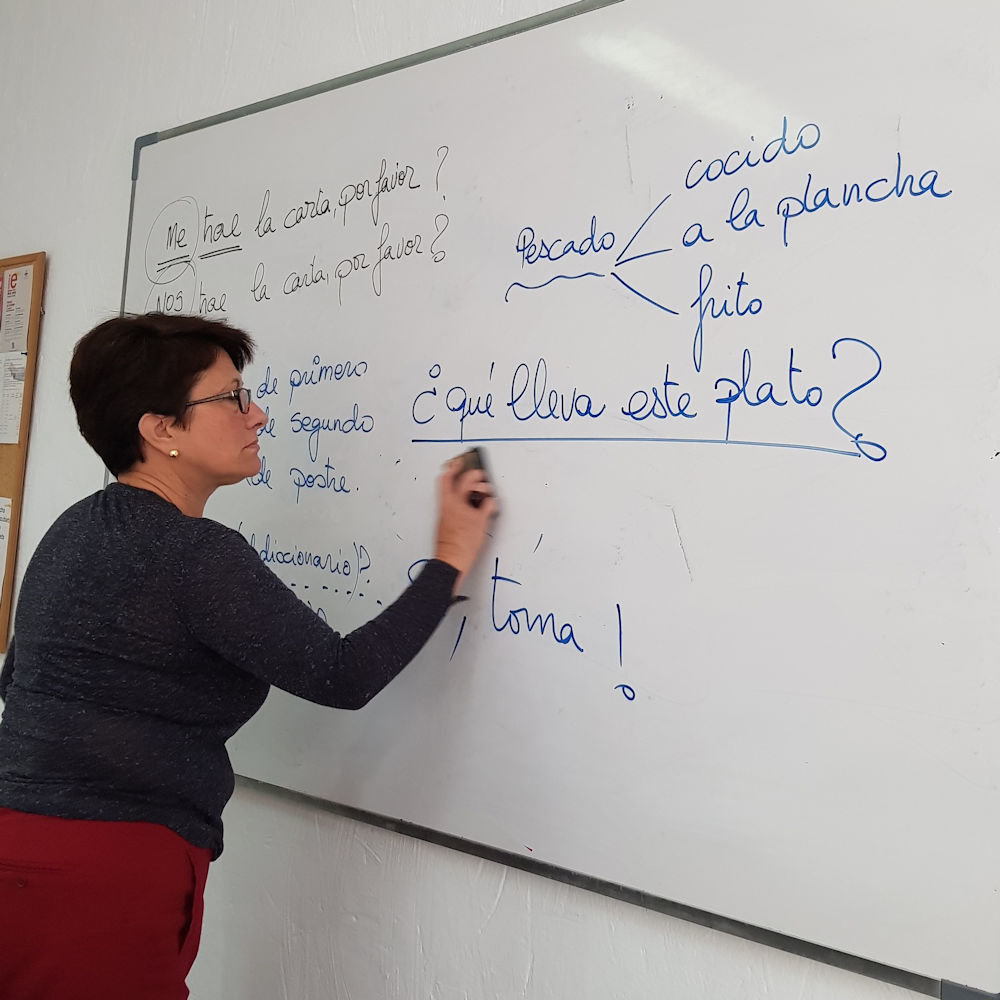 Me trae la carta, por favor?
NOS trae la carta, por favor?
de primero
de segundo
de postre.
diccionario)?
Pescado
cocido
a la plancha
frito
¿qué lleva este plato?
, toma!